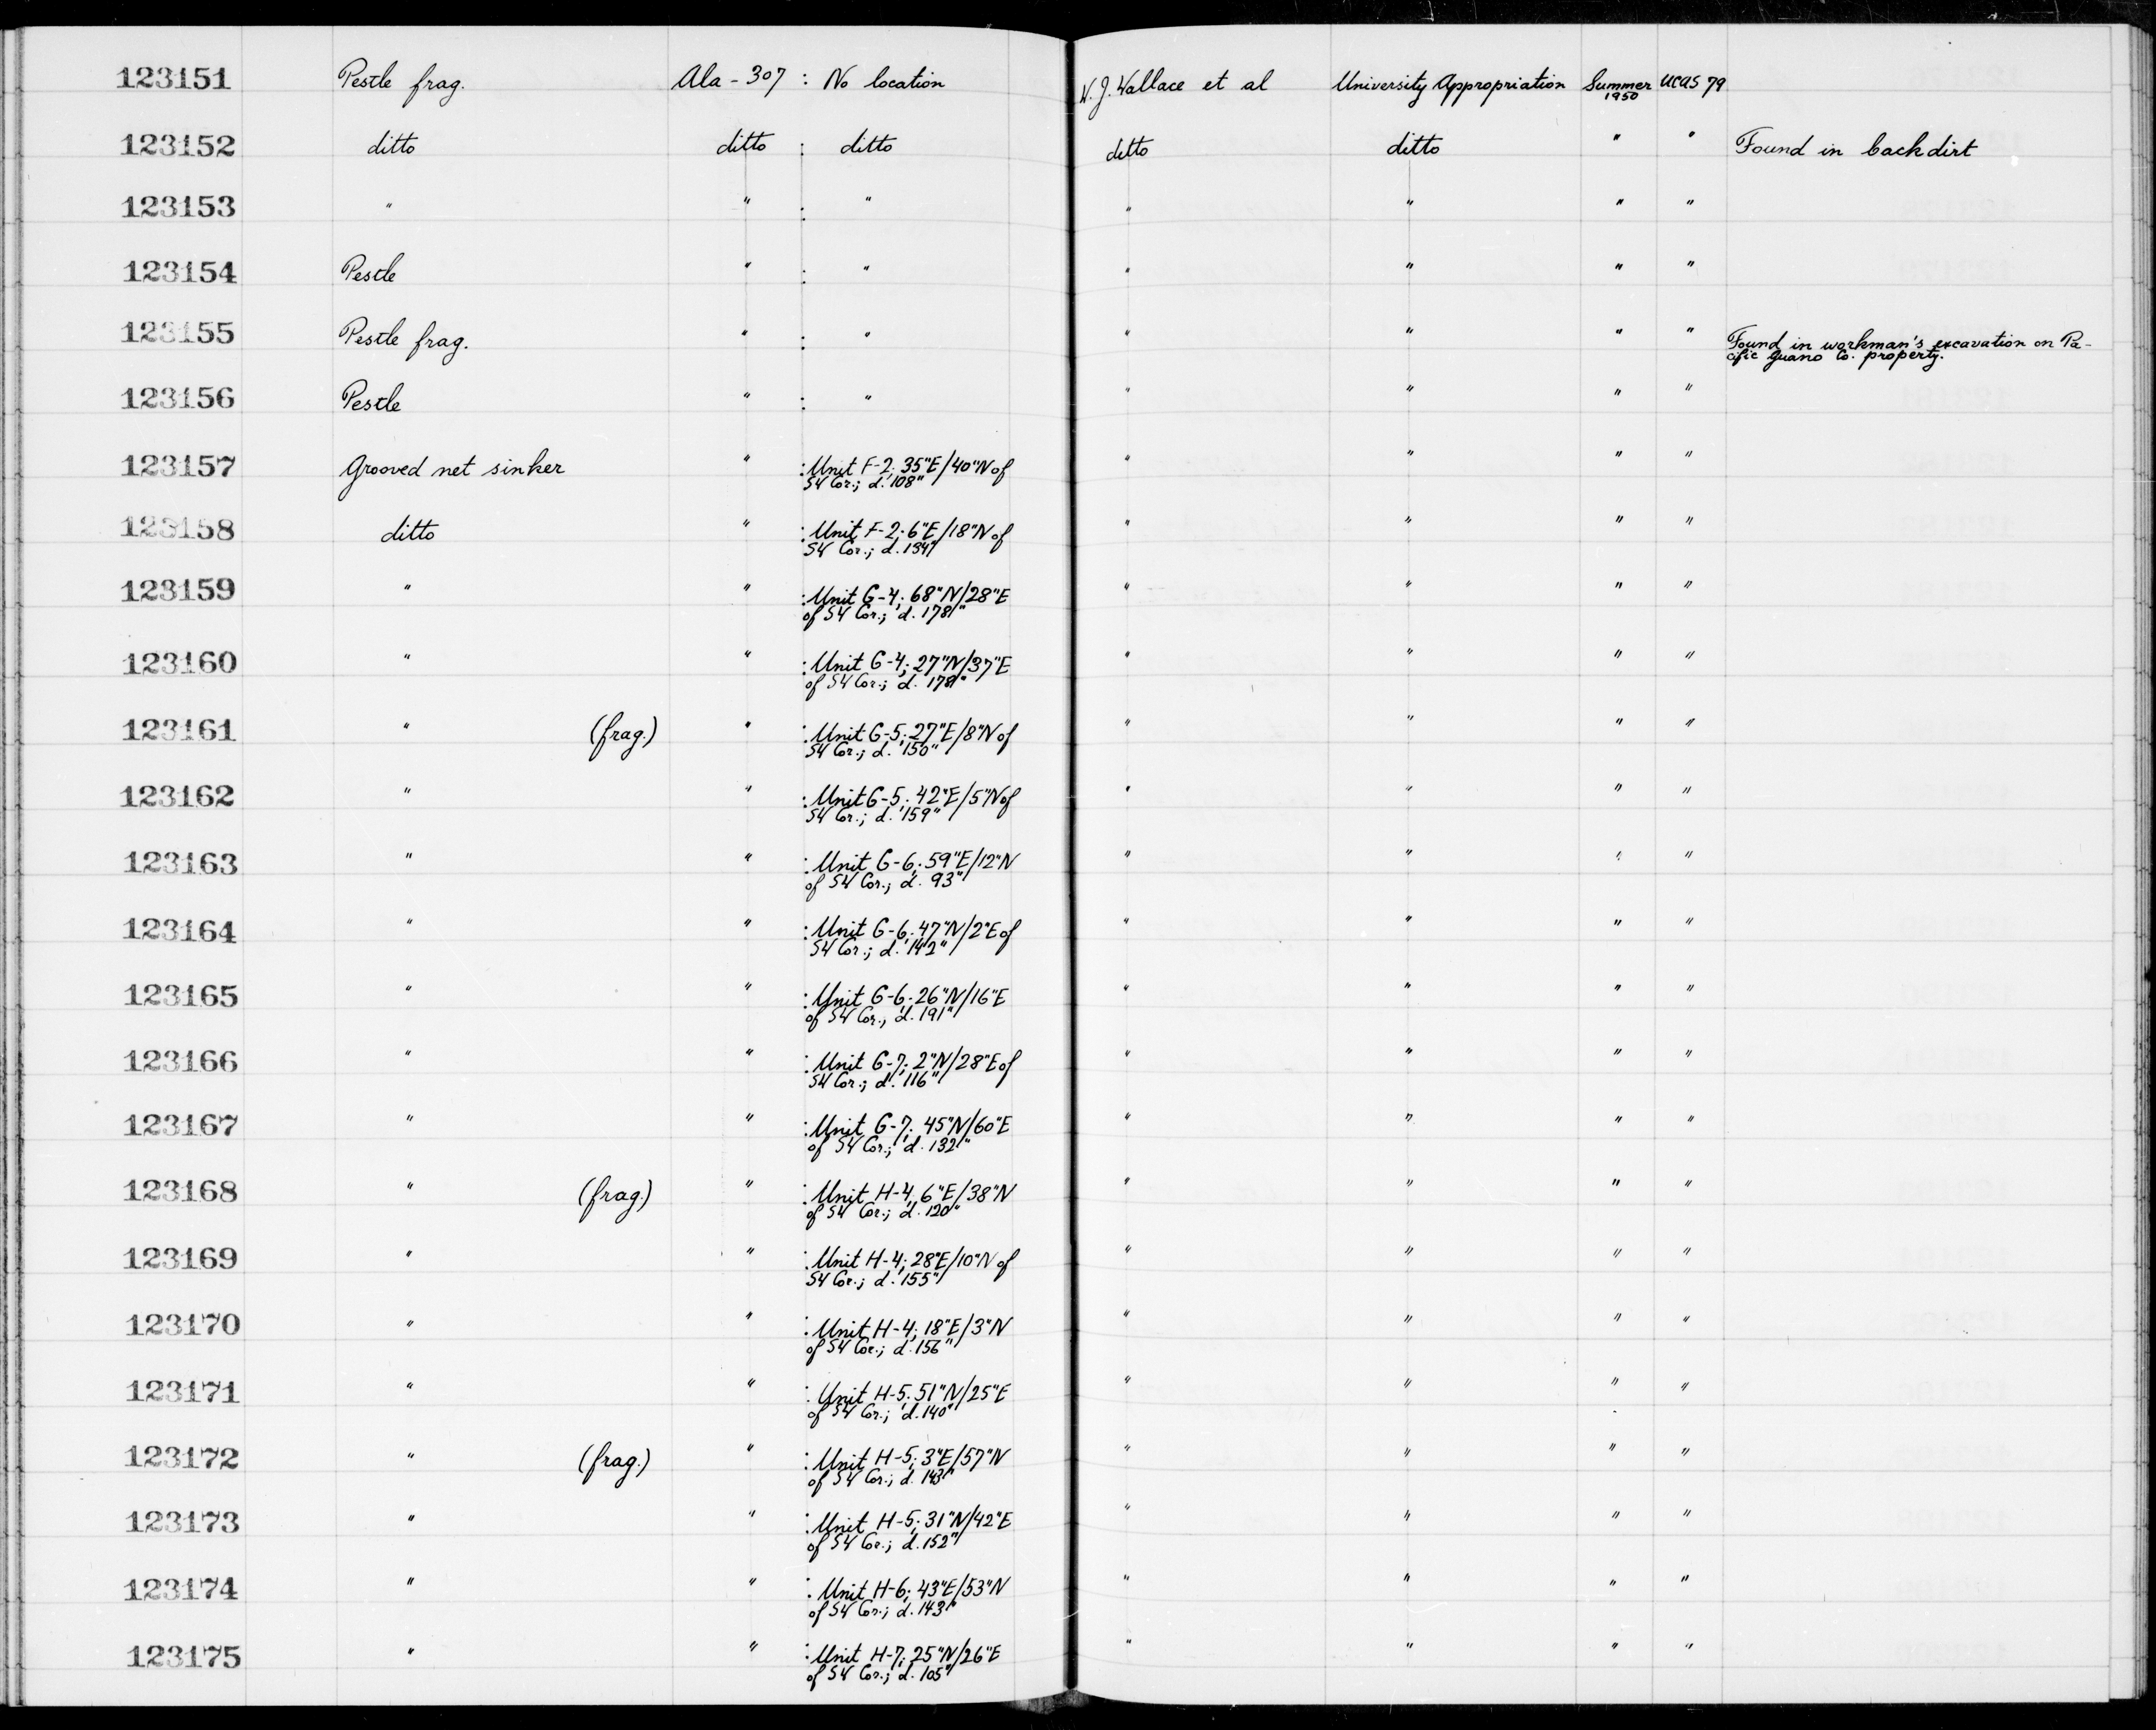 123151 Pestle frag. Ala - 307 : No location W. J. Wallace et al University Appropriation Summer 1950 UCAS 79
123152 ditto ditto : ditto ditto ditto " " Found in backdirt
123153 " " : " " " " "
123154 Pestle " : " " " " "
123155 Pestle frag. " : " " " " " Found in workman's excavation on Pa-
cific Guano Co. property.
123156 Pestle " : " " " " "
123157 Grooved net sinker " : Unit F-2; 35"E/40"N of " " " "
SW Cor.; d. 108"
123158 ditto " : Unit F-2; 6"E/18"N of " " " "
SW Cor.; d. 134"
123159 " " : Unit G-4; 68"N/28"E " " " "
of SW Cor.; d. 178"
123160 " " : Unit G-4; 27"N/37"E " " " "
of SW Cor.; d. 178"
123161 " (frag.) " : Unit G-5; 27"E/8"N of " " " "
SW Cor.; d. 150"
123162 " " : Unit G-5; 42"E/5"N of " " " "
SW Cor.; d. 159"
123163 " " : Unit G-6; 59"E/12"N " " " "
of SW Cor.; d. 93"
123164 " " : Unit G-6; 47"N/2"E of " " " "
SW Cor.; d. 142"
123165 " " : Unit G-6; 26"N/16"E " " " "
of SW Cor., d. 191"
123166 " " : Unit G-7; 2"N/28"E of " " " "
SW Cor.; d. 116"
123167 " " : Unit G-7; 45"N/60"E " " " "
of SW Cor.; d. 132"
123168 " (frag.) " : Unit H-4; 6"E/38"N " " " "
of SW Cor.; d. 120"
123169 " " : Unit H-4; 28"E/10"N of " " " "
SW Cor.; d. 155"
123170 " " : Unit H-4; 18"E/3"N " " " "
of SW Cor.; d. 156"
123171 " " : Unit H-5; 51"N/25"E " " " "
of SW Cor.; d. 140"
123172 " (frag.) " : Unit H-5; 3"E/57"N " " " "
of SW Cor.; d. 143"
123173 " " : Unit H-5; 31"N/42"E " " " "
of SW Cor.; d. 152"
123174 " " : Unit H-6; 43"E/53"N " " " "
of SW Cor.; d. 143"
123175 " " : Unit H-7; 25"N/26"E " " " "
of SW Cor.; d. 105"